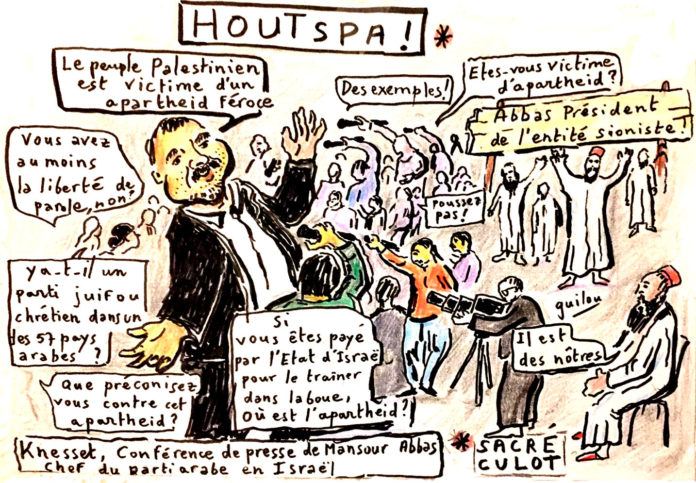 HOUTSPA! *
Le peuple Palestinien
est victime d'un
apartheid féroce
Des exemples!
Etes-vous victime
d'apartheid?
Abbas Président
de l'entité sioniste!
Vous avez
au moins
la liberté de
parole, non?
poussez
pas!
ya-t-il un
parti juif ou
chrétien dans un
des 57 pays
arabes ?
Si
vous êtes payé
par l'Etat d'Israël
pour le traîner
dans la boue,
où est l'apartheid?
guilou
Il est
des nôtres
Que préconisez
vous contre cet
apartheid?
Knesset, Conférence de presse de Mansour Abbas
chef du parti arabe en Israël
* SACRE
CULOT